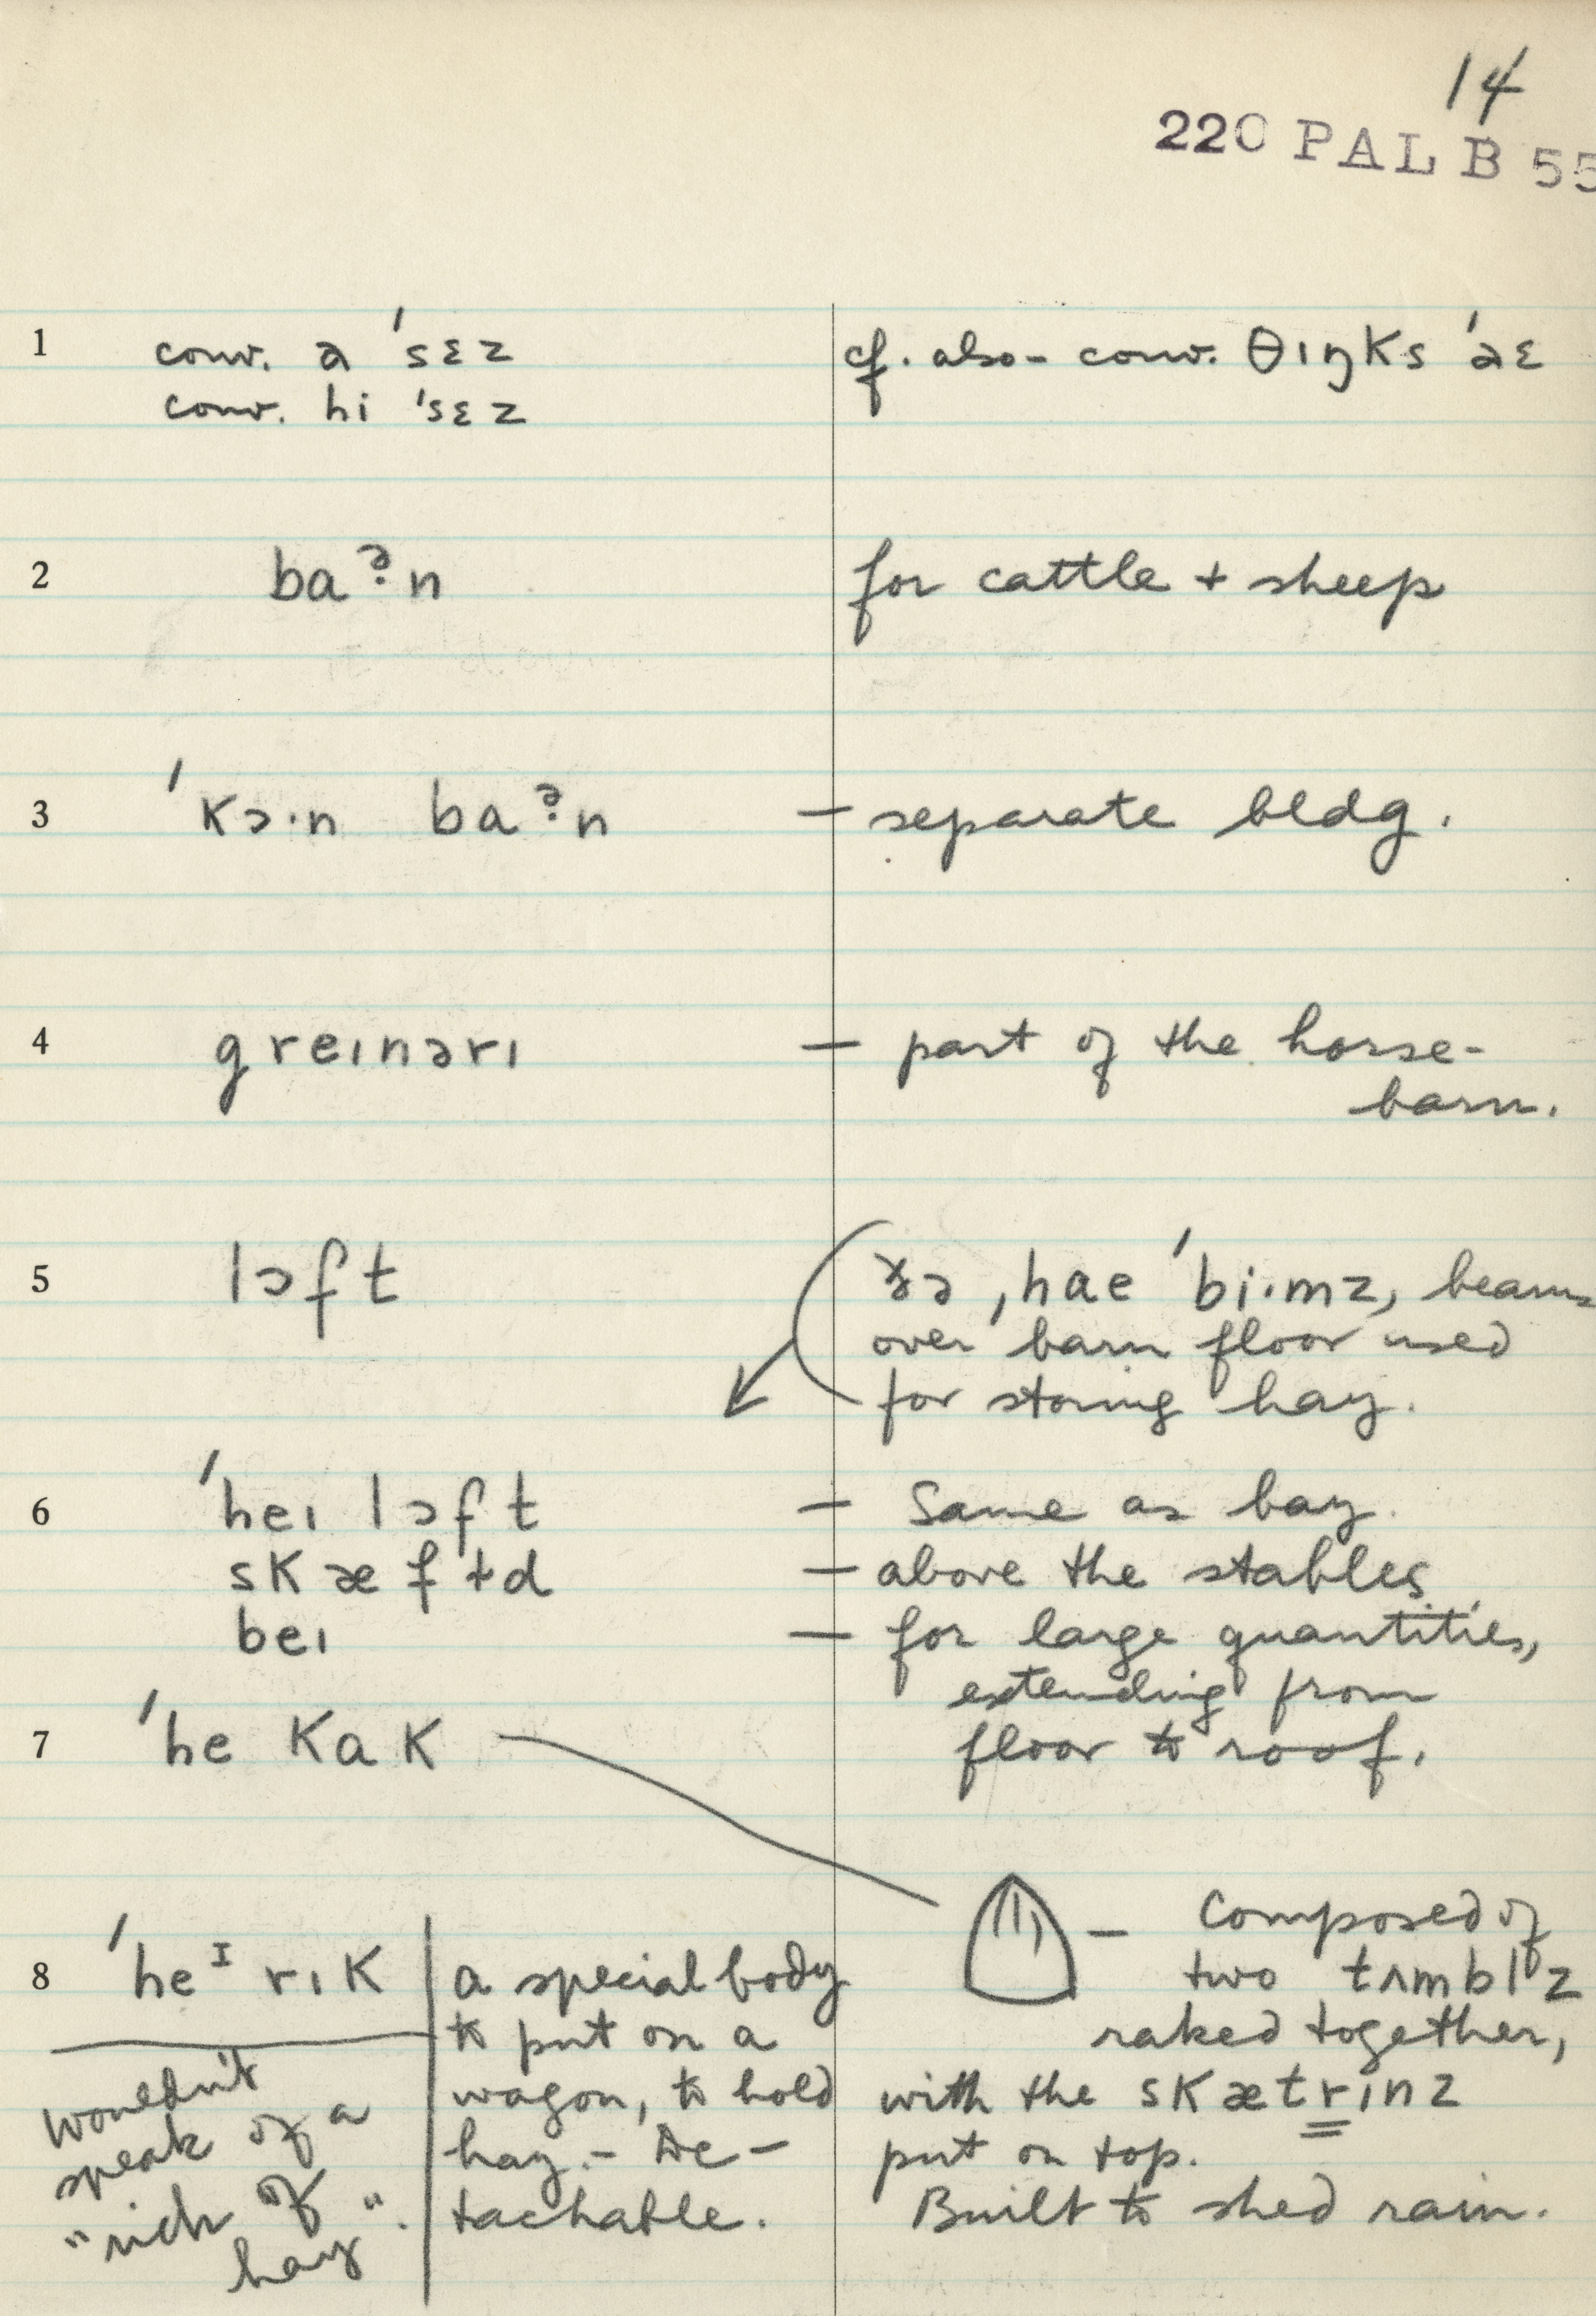 14
220 PAL B 55
1 conv. ə 'sɛz cf. also - conv. θɪŋks 'əɛ
conv. hi 'sɛz
2 baᵊ̣n for cattle + sheep
3 'kɔ·n baᵊ̣n — separate bldg.
4 greɪnərɪ — part of the horse-
barn.
5 lɔft ðə ˌhae 'bi·mz, beams
over barn floor used
for storing hay.
6 'heɪ lɔft — Same as bay.
skæftd — above the stables
beɪ — for large quantities,
extending from
floor to roof.
7 'he kak
— Composed of
two tʌmblz
raked together,
with the skætrɪnz
put on top.
Built to shed rain.
8 'heᴵ rɪk
a special body
to put on a
wagon, to hold
hay. - De-
tachable.
wouldn't
speak of a
"rick of
hay".